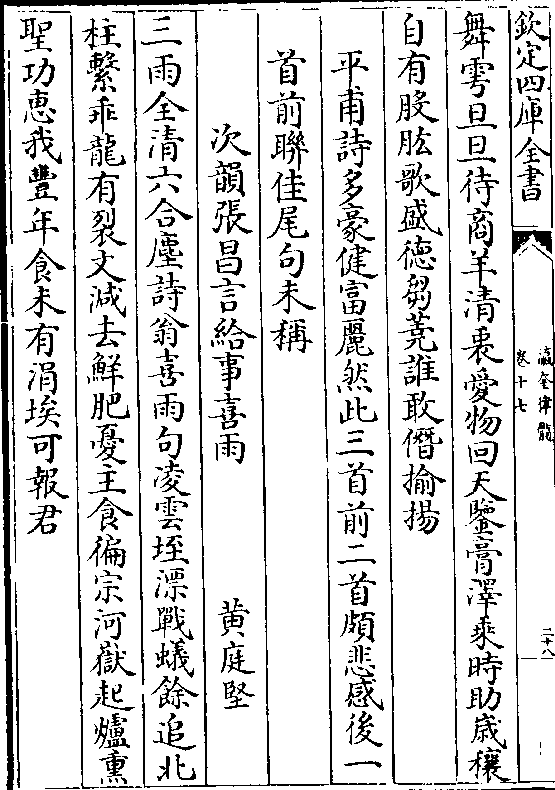 欽定四庫全書
瀛奎律髓
卷十七
二十八
舞雩旦旦待商羊清衷愛物回天鑒膏澤乗時助歳穰
自有股肱歌盛德芻蕘誰敢僭揄揚
平甫詩多豪健富麗然此三首前二首頗悲感後一
首前聯佳尾句未稱
次韻張昌言給事喜雨
黄庭堅
三雨全清六合塵詩翁喜雨句凌雲垤漂戰蟻餘追北
柱繫乖龍有裂文減去鮮肥憂主食徧宗河嶽起爐熏
聖功惠我豐年食未有涓埃可報君